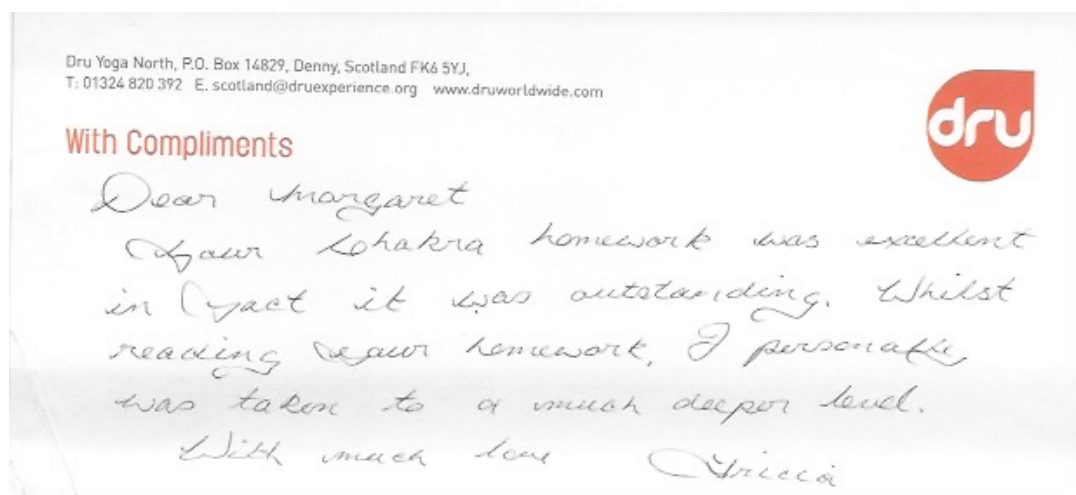 Dru Yoga North, P.O. Box 14829, Denny, Scotland FK6 5YJ,
T: 01324 820 392 E. scotland@druexperience.org www.druworldwide.com
dru
With Compliments
Dear Margaret
Your Chakra homework was excellent
in fact it was outstanding. Whilst
reading your homework, I personally
was taken to a much deeper level.
With much love Tricia